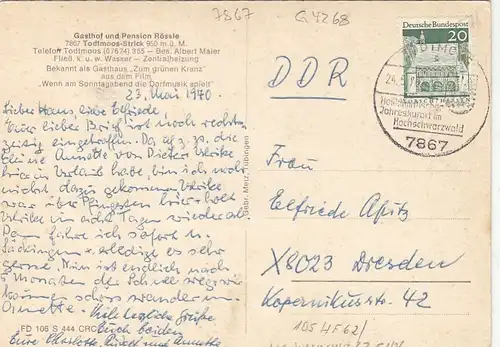 7867
G 4268
Gasthof und Pension Rössle
7867 Todtmoos-Strick 950 m ü. M.
Telefon Todtmoos (07674) 355 — Bes. Albert Maier
Fließ. k. u. w. Wasser — Zentralheizung
Bekannt als Gasthaus „Zum grünen Kranz"
aus dem Film
"Wenn am Sonntagabend die Dorfmusik spielt"
23. Mai 1970.
Liebe Hans, liebe Elfriede,
Euer lieber Brief ist noch rechtzeitig
eingetroffen. Da ich z. Zt. die
kleine Annette von Dieter Ulrike
hier in Urlaub habe, bin ich noch
nicht dazu gekommen. Ulrike
war über Pfingsten hier + holt
Ulrike in acht Tagen wieder ab.
Dann fahre ich sofort n.
Säckingen + erledige es sehr
gerne. Nun ist endlich nach
7 Monaten der Schnee weg + wir
können schon wandern
Annette. Viele herzliche Grüße
Euch beiden
Eure Charlotte, und Annette
FD 106 S 444 CRC
Gebr. Metz, Tübingen
Deutsche Bundespost
20
LORSCH/HESSEN
TODTMOOS
Jahreskurort im
Hochschwarzwald
7867
DDR
Frau
Elfriede Apitz
X8023 Dresden
Kopernikusstr. 42
105 4562/